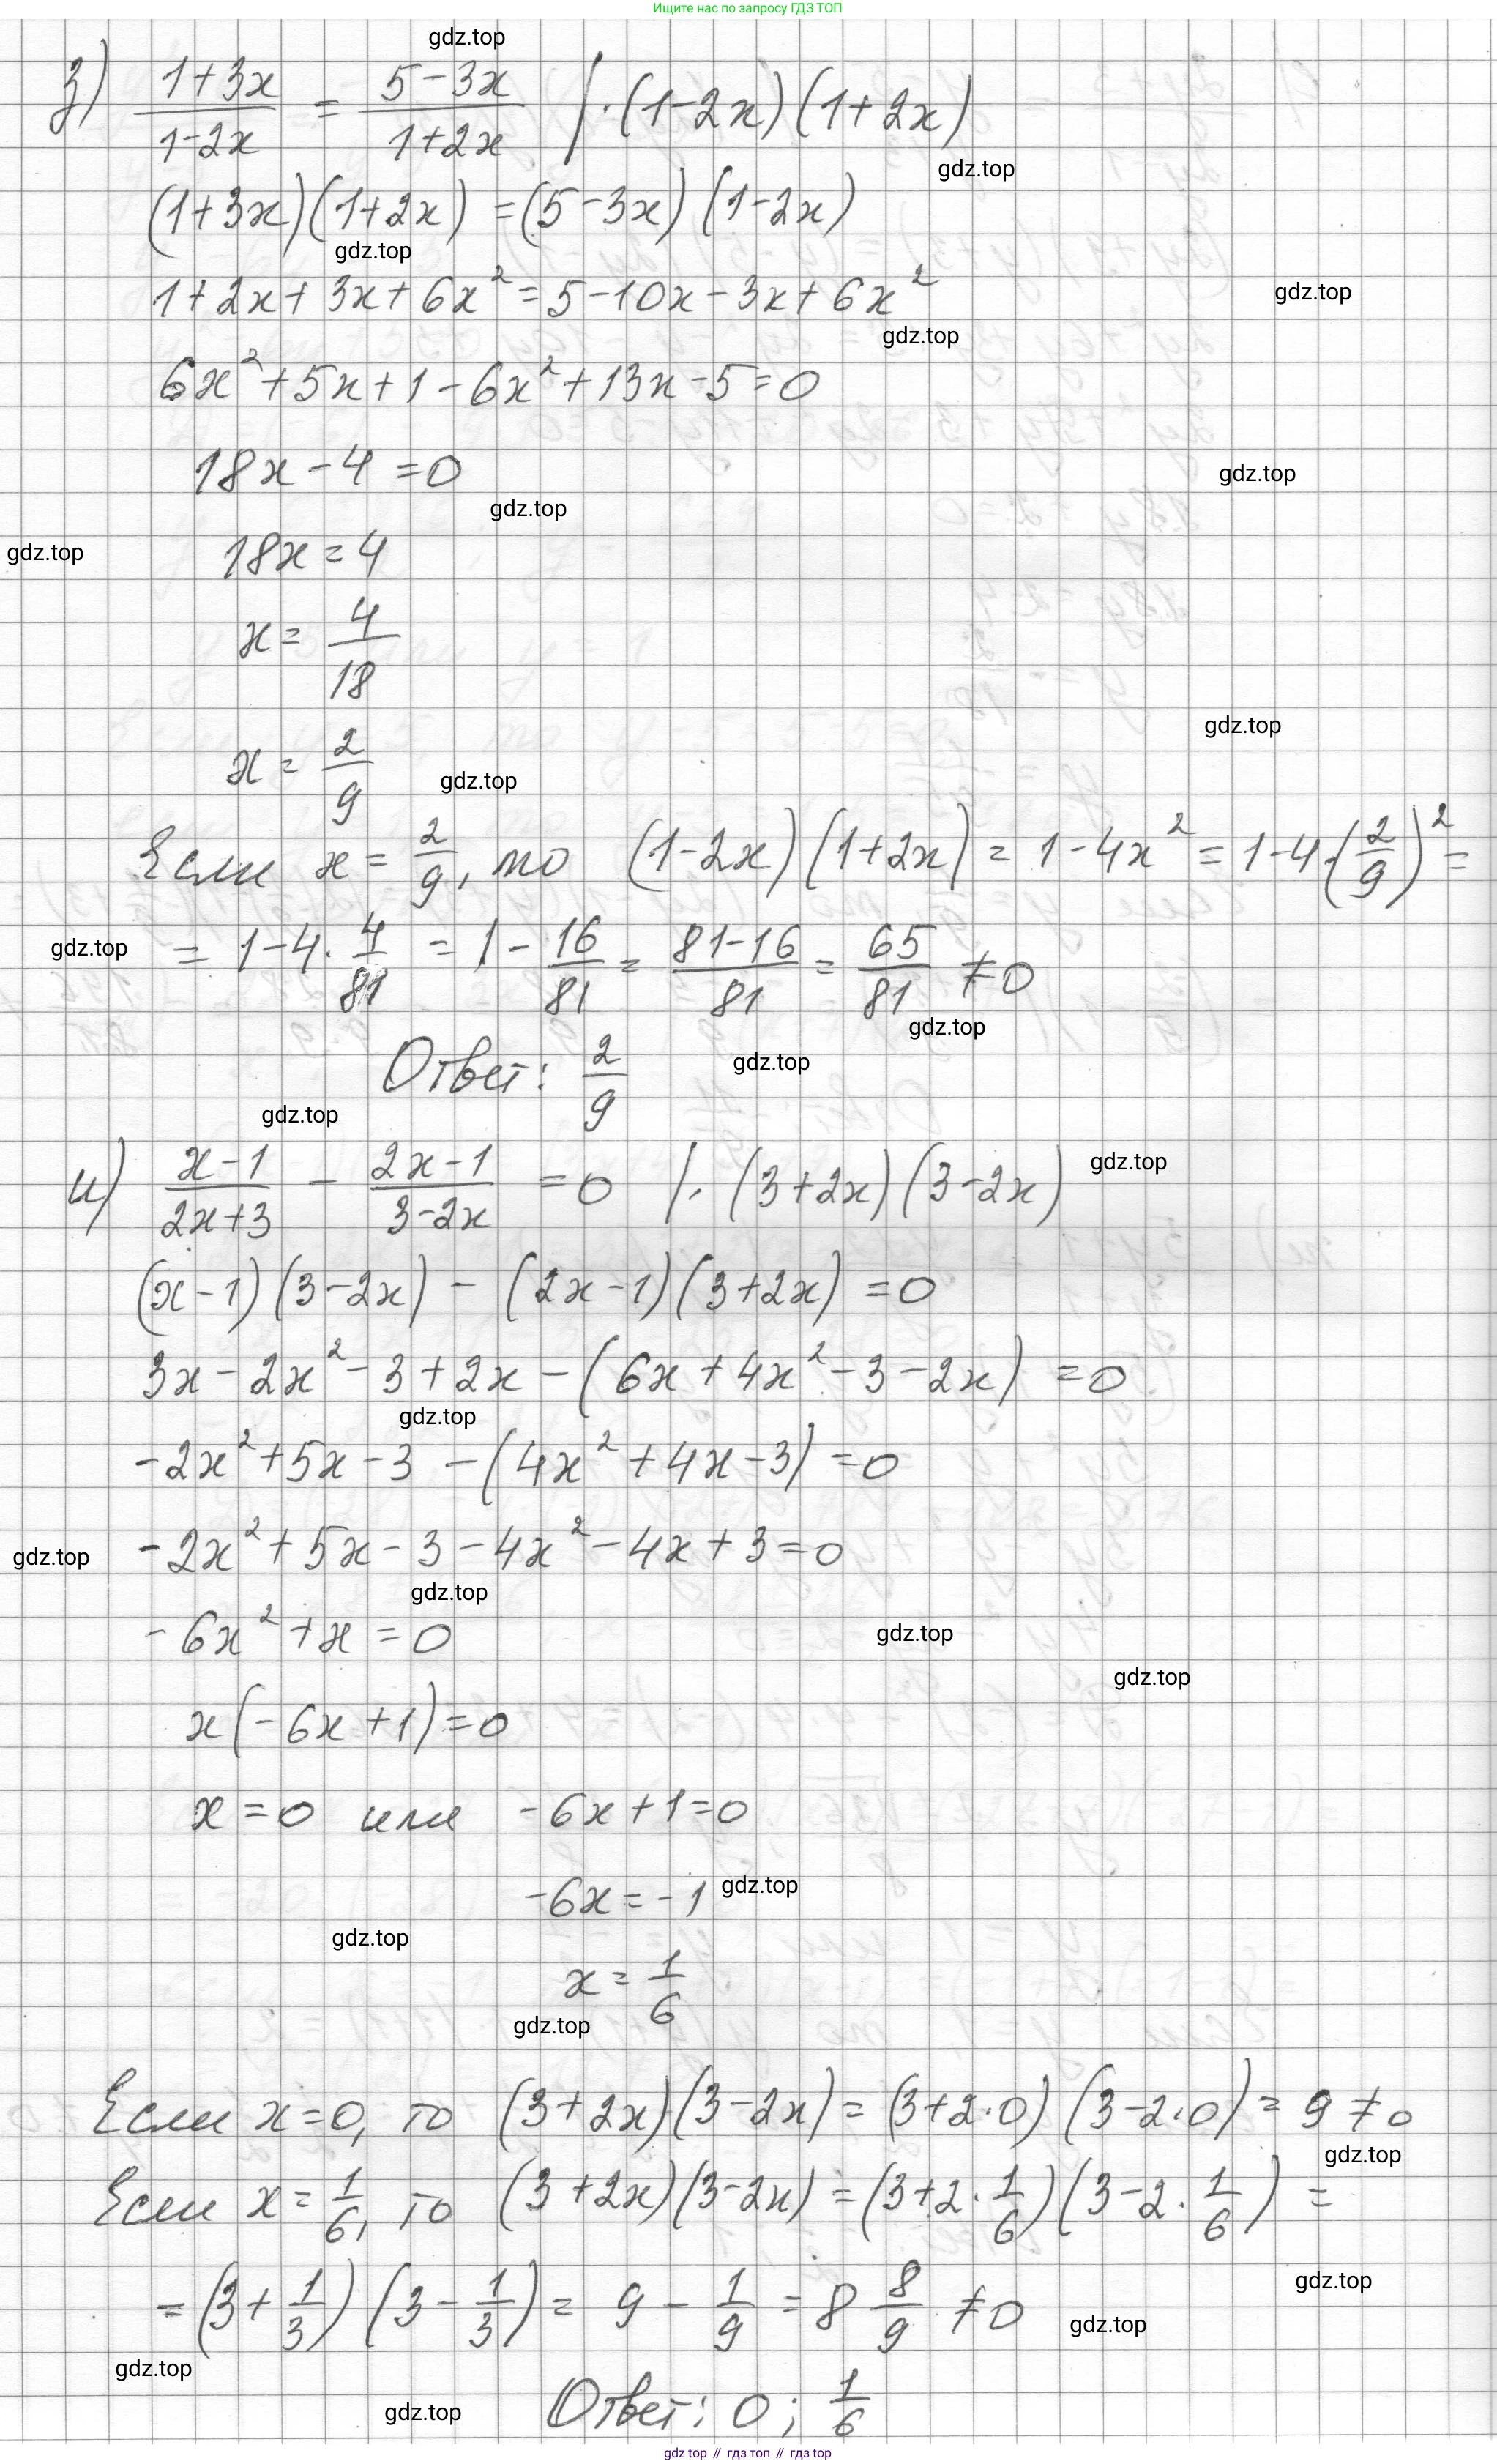 Ищите нас по запросу ГДЗ ТОП
gdz.top
з) (1+3x)/(1-2x) = (5-3x)/(1+2x) | · (1-2x)(1+2x)
gdz.top
(1+3x)(1+2x) = (5-3x)(1-2x)
gdz.top
1+2x+3x+6x² = 5-10x-3x+6x²
gdz.top
gdz.top
6x²+5x+1-6x²+13x-5=0
18x-4=0
gdz.top
gdz.top
18x=4
gdz.top
x = 4/18
gdz.top
x = 2/9
gdz.top
Если x = 2/9, то (1-2x)(1+2x) = 1-4x² = 1-4·(2/9)² =
gdz.top
= 1-4·4/81 = 1 - 16/81 = (81-16)/81 = 65/81 ≠ 0
gdz.top
Ответ: 2/9
gdz.top
gdz.top
и) (x-1)/(2x+3) - (2x-1)/(3-2x) = 0 | · (3+2x)(3-2x)
gdz.top
(x-1)(3-2x) - (2x-1)(3+2x) = 0
3x-2x²-3+2x-(6x+4x²-3-2x) = 0
gdz.top
-2x²+5x-3-(4x²+4x-3) = 0
-2x²+5x-3-4x²-4x+3=0
gdz.top
gdz.top
-6x²+x=0
gdz.top
gdz.top
x(-6x+1)=0
x=0 или -6x+1=0
-6x=-1
gdz.top
gdz.top
x = 1/6
gdz.top
Если x=0, то (3+2x)(3-2x) = (3+2·0)(3-2·0) = 9 ≠ 0
gdz.top
Если x = 1/6, то (3+2x)(3-2x) = (3+2·1/6)(3-2·1/6) =
gdz.top
= (3+1/3)(3-1/3) = 9 - 1/9 = 8 8/9 ≠ 0
gdz.top
gdz.top
Ответ: 0; 1/6
gdz.top
gdz top // гдз топ // гдз top